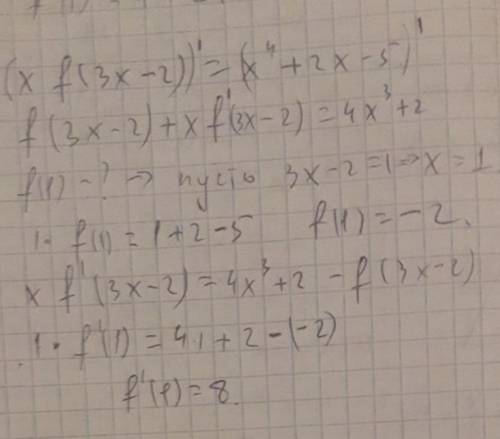 (x f(3x-2))' = (x⁴+2x-5)'
f(3x-2)+x f'(3x-2) = 4x³+2
f(1)-? → пусть 3x-2=1 ⇒ x=1
1· f(1) = 1+2-5 f(1) = -2.
x f'(3x-2) = 4x³+2 - f(3x-2)
1· f'(1) = 4·1+2-(-2)
f'(1) = 8.